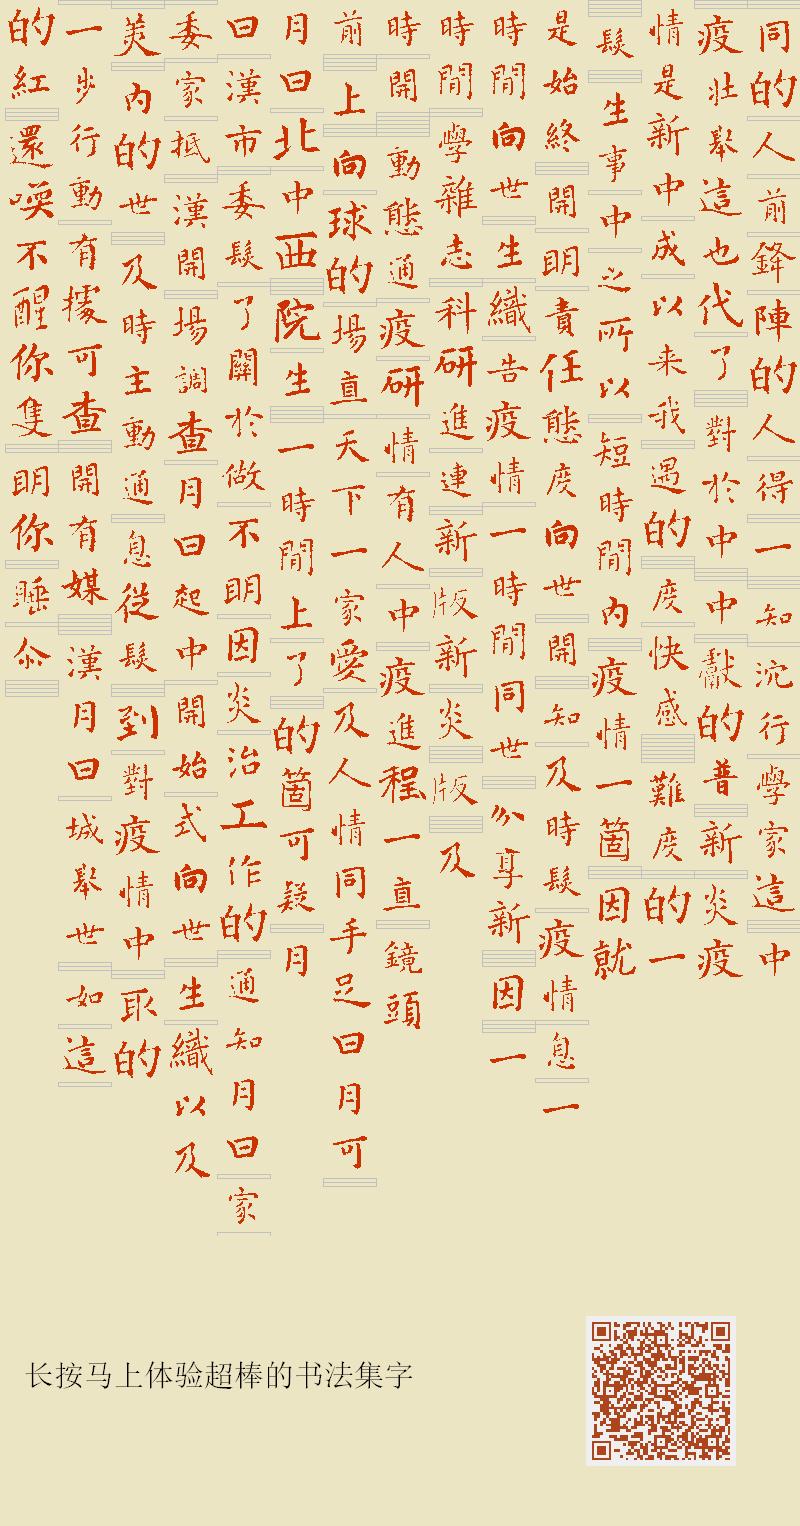 同的人前鋒陣的人得一知沉行學家這中
疫壯舉這也代了對於中中獻的普新炎疫
情是新中成以来我遇的度快感難度的一
髮生事中之所以短時間內疫情一箇因就
是始終開明責任態度向世開知及時髮疫情息一
時間向世生織告疫情一時間同世分享新因一
時間學雜志科研進連新版新炎版及
時開動態通疫研情有人中疫進程一直鏡頭
前上向球的場直天下一家愛及人情同手足曰月可
月曰北中西院生一時間上了的箇可疑月
曰漢市委髮了關於做不明因炎治工作的通知月曰家
委家抵漢開場調查月曰起中開始式向世生織以及
美內的世及時主動通息從髮到對疫情中取的
一步行動有據可查開有媒漢月曰城舉世如這
的紅還喚不醒你隻明你睡
长按马上体验超棒的书法集字